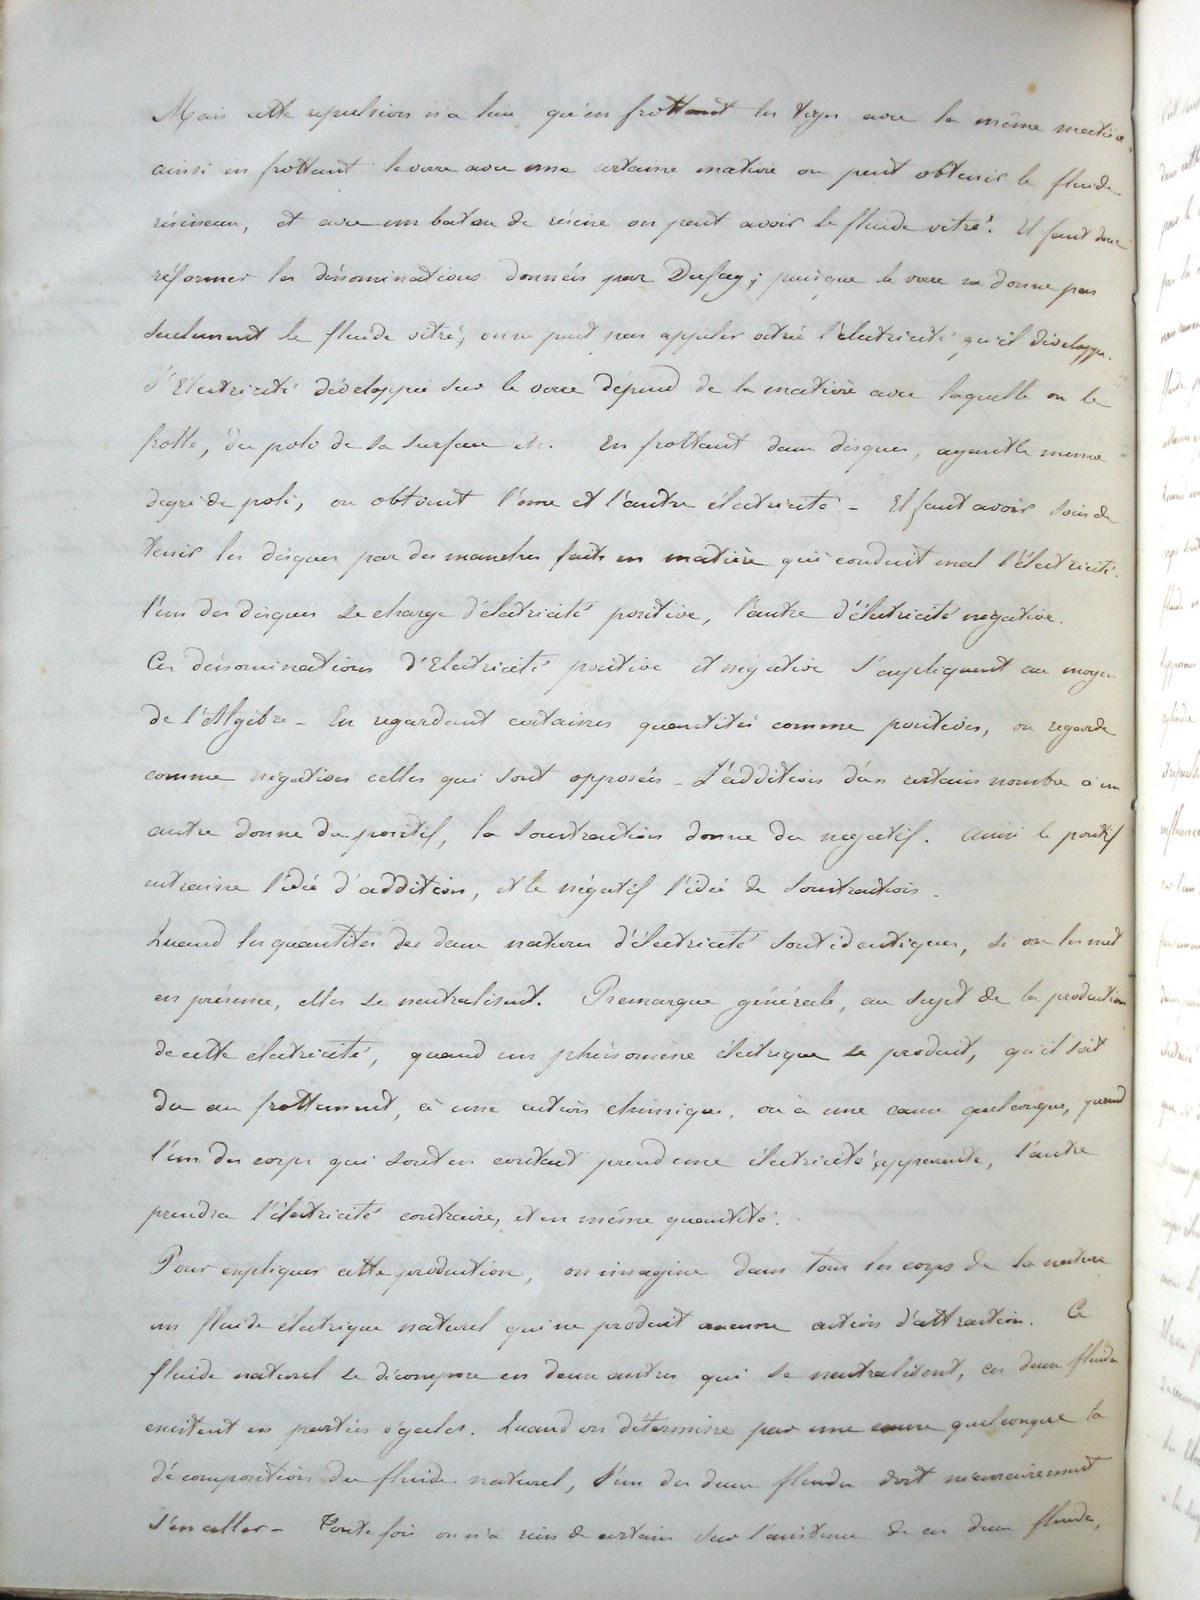 Mais cette repulsion n'a lieu qu'en frottant les tiges avec la même matière,
ainsi en frottant le verre avec une certaine matière on peut obtenir le fluide
résineux, et avec un baton de résine on peut avoir le fluide vitré. Il faut donc
réformer les dénominations données par Dufay; puisque le verre ne donne pas
seulement le fluide vitré, on ne peut pas appeler vitrée l'électricité qu'il développe.
L'Electricité développée sur le verre dépend de la matière avec laquelle on le
frotte, du poli de sa surface etc. En frottant deux disques, ayant le meme
degré de poli, on obtient l'une et l'autre électricité. - Il faut avoir soin de
tenir les disques par des manches faits en matière qui conduit mal l'électricité.
l'un des disques se charge d'électricité positive, l'autre d'électricité négative.
Ces dénominations d'Electricité positive et négative s'expliquent au moyen
de l'Algèbre - En regardant certaines quantités comme positives, on regarde
comme négatives celles qui sont opposées - L'addition d'un certain nombre à un
autre donne du positif, la soustraction donne du negatif. Ainsi le positif
entraine l'idée d'addition, et le négatif l'idée de soustraction.
Quand les quantités des deux natures d'électricité sont identiques, si on les met
en présence, elles se neutralisent. Remarque générale, au sujet de la production
de cette électricité, quand un phénomène électrique se produit, qu'il soit
du au frottement, à une action chimique, ou à une cause quelconque, quand
l'un des corps qui sont en contact prend une électricité apparente, l'autre
prendra l'électricité contraire, et en même quantité.
Pour expliquer cette production, on imagine dans tous les corps de la nature
un fluide électrique naturel qui ne produit aucune action d'attraction. Ce
fluide naturel se décompose en deux autres qui se neutralisent, ces deux fluides
existent en parties égales. Quand on détermine par une cause quelconque la
décomposition du fluide naturel, l'un des deux fluides doit nécessairement
s'en aller - Toute fois on n'a rien de certain sur l'existence de ces deux fluides,